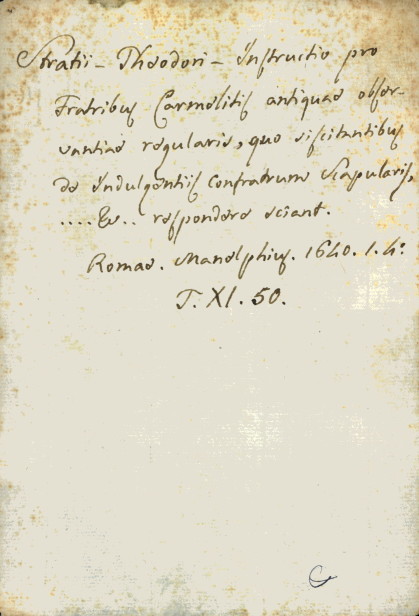 Stratii - Theodori - Instructio pro
Fratribus Carmelitis antiquae obser-
vantiae regularis, quo siscitantibus
de Indulgentiis confratrum Scapularis,
.... &.. respondere sciant.
Romae. Manelphius. 1640. 1. 4:
T. XI. 50.